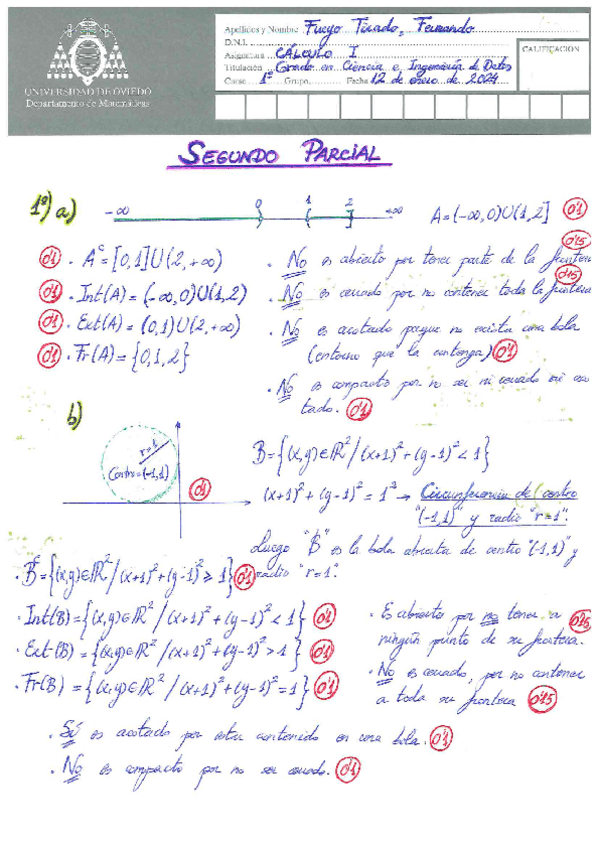 UNIVERSIDAD DE OVIEDO
Departamento de Matemáticas
Apellidos y Nombre Fueyo Tirado, Fernando
D.N.I.
Asignatura CÁLCULO I
Titulación Grado en Ciencia e Ingeniería de Datos
Curso 1º Grupo Fecha 12 de enero de 2024
CALIFICACIÓN
SEGUNDO PARCIAL
1º) a) -∞ 0 1 2 +∞ A=(-∞,0)U(1,2] 0'1
0'1 · Aᶜ=[0,1]U(2,+∞)
0'1 · Int(A)=(-∞,0)U(1,2)
0'1 · Ext(A)=(0,1)U(2,+∞)
0'1 · Fr(A)={0,1,2}
· No es abierto por tener parte de la frontera 0'15
· No es cerrado por no contener toda la frontera 0'15
· No es acotado porque no existe una bola
(entorno que la contenga) 0'1
· No es compacto por no ser ni cerrado ni aco
tado. 0'1
b)
r=1
Centro=(-1,1)
0'1
B={(x,y)∈ℝ²/(x+1)²+(y-1)²<1}
(x+1)²+(y-1)²=1² → Circunferencia de centro
"(-1,1)" y radio "r=1".
Luego "B" es la bola abierta de centro "(-1,1)" y
radio "r=1".
· Bᶜ={(x,y)∈ℝ²/(x+1)²+(y-1)²⩾1} 0'1
· Int(B)={(x,y)∈ℝ²/(x+1)²+(y-1)²<1} 0'1
· Ext(B)={(x,y)∈ℝ²/(x+1)²+(y-1)²>1} 0'1
· Fr(B)={(x,y)∈ℝ²/(x+1)²+(y-1)²=1} 0'1
· Es abierto por no tener a
ningún punto de su frontera.
· No es cerrado, por no contener
a toda su frontera 0'15
· Sí es acotado por estar contenido en una bola. 0'1
· No es compacto por no ser cerrado. 0'1